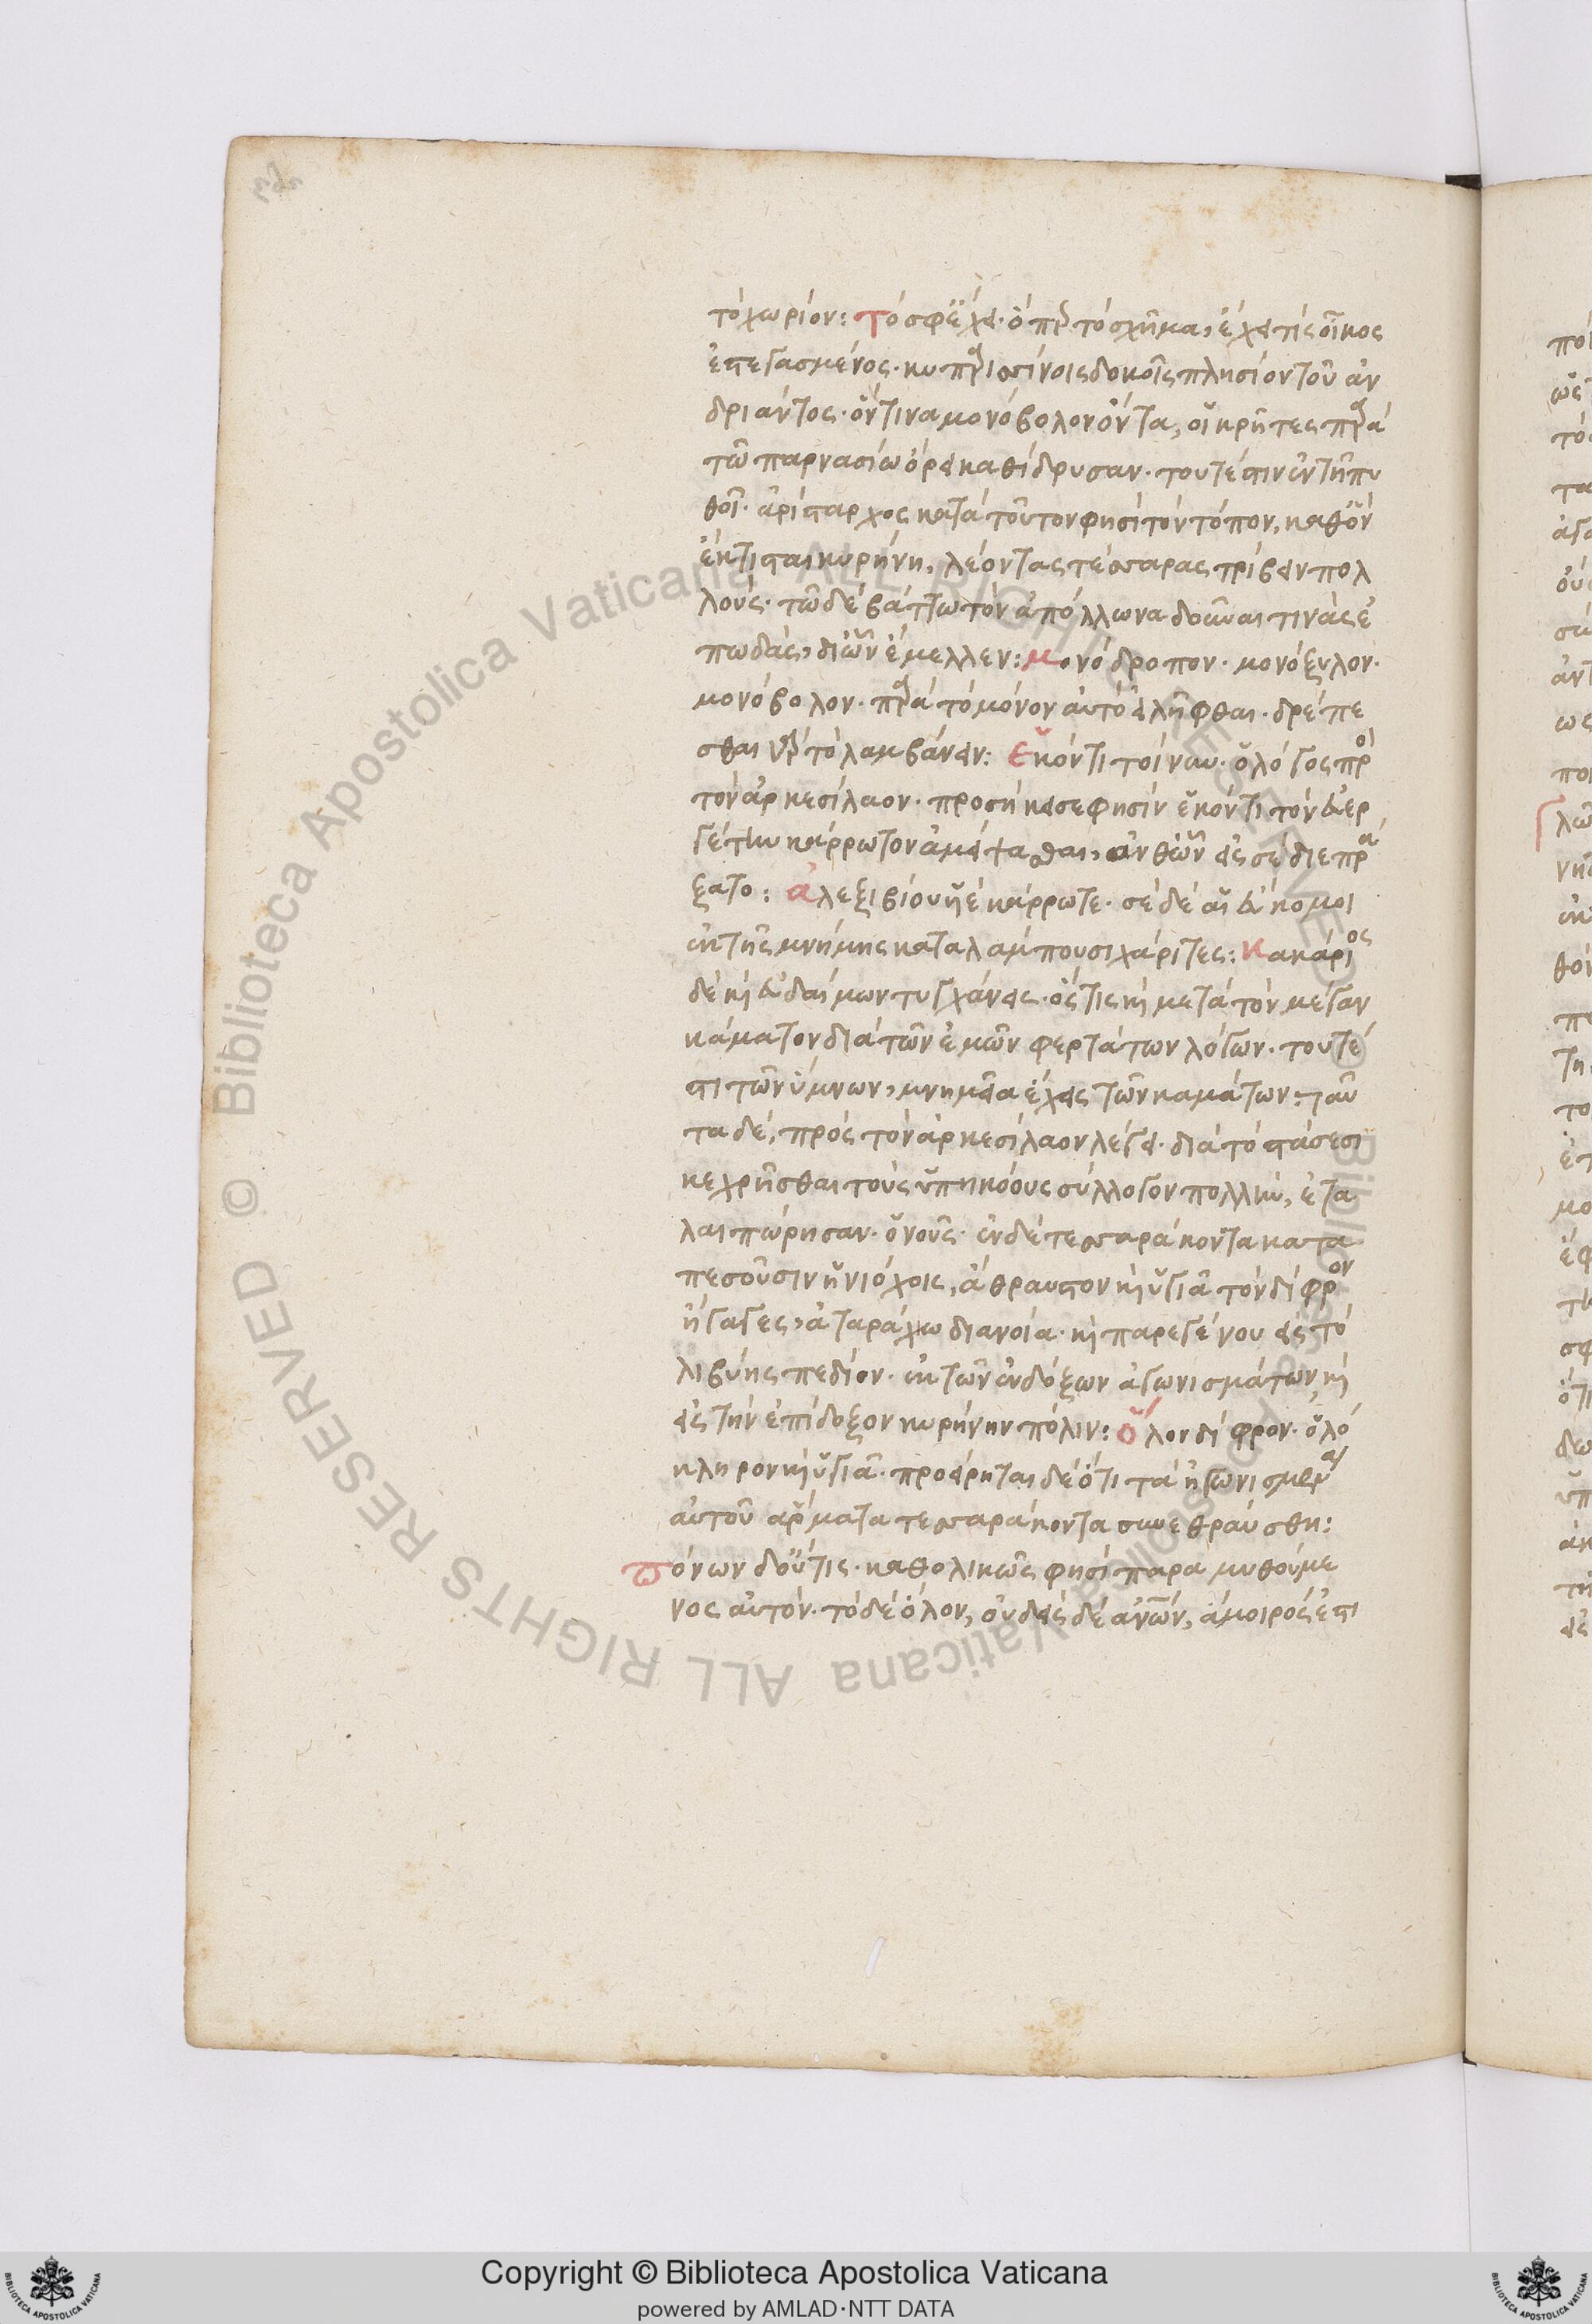 τὸ χωρίον: τό σφ' ἔχει· ὅπερ τὸ σχῆμα, ἔχει τις οἶκος
ἐστεγασμένος· κυπαρισσίνοις δοκοῖς πλησίον τοῦ ἀν
δριάντος· ὅντινα μονόβολον ὄντα, οἱ κρῆτες παρὰ
τῶ παρνασίω ὄρει καθίδρυσαν· τουτέστιν ἐν τῆ πυ
θοῖ· ἀρίσταρχος κατὰ τοῦτον φησὶ τὸν τόπον, καθ' ὃν
ἔκτισται κυρήνη, λέοντας τέσσαρας τρίβειν πολ
λούς· τῶ δὲ βάττω τὸν ἀπόλλωνα δοῦναι τινὰς ἐ
πωδάς, δι' ὧν ἔμελλεν: μονόδροπον· μονόξυλον·
μονόβολον· παρὰ τὸ μόνον αὐτὸ εἰλῆφθαι· δρέπε
σθαι γὰρ τὸ λαμβάνειν: ἑκόντι τοίνυν· ὁ λόγος πρὸς
τὸν ἀρκεσίλαον· προσήκει σε φησὶν ἑκόντι τὸν εὐερ
γέτην κάρρωτον ἀμείψασθαι, ἀνθ' ὧν εἰς σὲ διεπρά
ξατο: ἀλεξιβίου υἱὲ κάρρωτε· σὲ δὲ αἱ εὔκομοι
ἐκ τῆς μνήμης καταλάμπουσι χάριτες: κακάριος
δὲ καὶ εὐδαίμων τυγχάνεις· ὅστις καὶ μετὰ τὸν μέγαν
κάματον διὰ τῶν ἐμῶν φερτάτων λόγων· τουτέ
στι τῶν ὕμνων, μνημεῖα ἔχεις τῶν καμάτων: ταῦ
τα δὲ, πρὸς τὸν ἀρκεσίλαον λέγει· διὰ τὸ στάσεσι
κεχρῆσθαι τοὺς ὑπηκόους σύλλογον πολλὴν, ἐτα
λαιπώρησαν· ὁ νοῦς· ἐν δὲ τεσσαράκοντα κατα
πεσοῦσιν ἡνιόχοις, ἄθραυστον καὶ ὑγιᾶ τὸν δίφρον
ἤγαγες, ἀταράχω διανοία· καὶ παρεγένου εἰς τὸ
λιβύης πεδίον· ἐκ τῶν ἐνδόξων ἀγωνισμάτων καὶ
εἰς τὴν ἐπίδοξον κυρήνην πόλιν: ὅλον δίφρον· ὁλό
κληρον καὶ ὑγιᾶ· προείρηται δὲ ὅτι τὰ ἠγωνισμένα
αὐτοῦ ἅρματα τεσσαράκοντα συνεθραύσθη:
πόνων δ' οὔτις· καθολικῶς φησὶ παραμυθούμε
νος αὐτόν· τὸ δὲ ὅλον, οὐδεὶς δὲ ἀνῶν, ἄμοιρός ἐστι
Copyright © Biblioteca Apostolica Vaticana
powered by AMLAD·NTT DATA